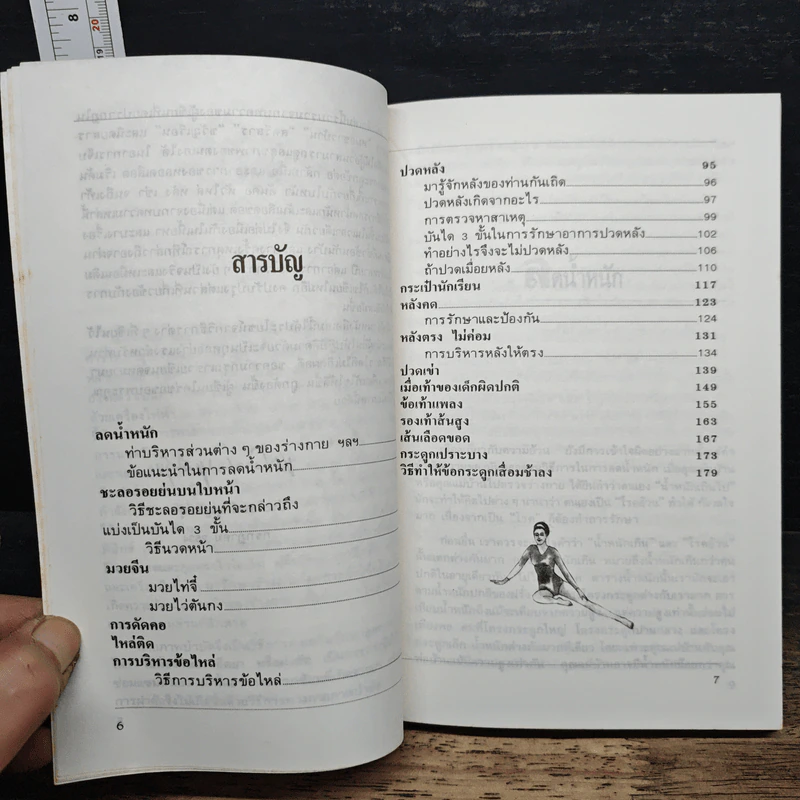 8
19
20
สารบัญ
ลดน้ำหนัก
ท่าบริหารส่วนต่าง ๆ ของร่างกาย ฯลฯ
ข้อแนะนำในการลดน้ำหนัก
ชะลอรอยย่นบนใบหน้า
วิธีชะลอรอยย่นที่จะกล่าวถึง
แบ่งเป็นบันได 3 ขั้น
วิธีนวดหน้า
มวยจีน
มวยไท่จี๋
มวยไว่ตันกง
การดัดคอ
ไหล่ติด
การบริหารข้อไหล่
วิธีการบริหารข้อไหล่
6
ปวดหลัง 95
มารู้จักหลังของท่านกันเถิด 96
ปวดหลังเกิดจากอะไร 97
การตรวจหาสาเหตุ 99
บันได 3 ขั้นในการรักษาอาการปวดหลัง 102
ทำอย่างไรจึงจะไม่ปวดหลัง 106
ถ้าปวดเมื่อยหลัง 110
กระเป๋านักเรียน 117
หลังคด 123
การรักษาและป้องกัน 124
หลังตรง ไม่ค่อม 131
การบริหารหลังให้ตรง 134
ปวดเข่า 139
เมื่อเท้าของเด็กผิดปกติ 149
ข้อเท้าแพลง 155
รองเท้าส้นสูง 163
เส้นเลือดขอด 167
กระดูกเปราะบาง 173
วิธีทำให้ข้อกระดูกเสื่อมช้าลง 179
7